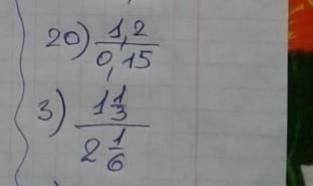 20) 1,2 / 0,15
3) 1 1/3 / 2 1/6